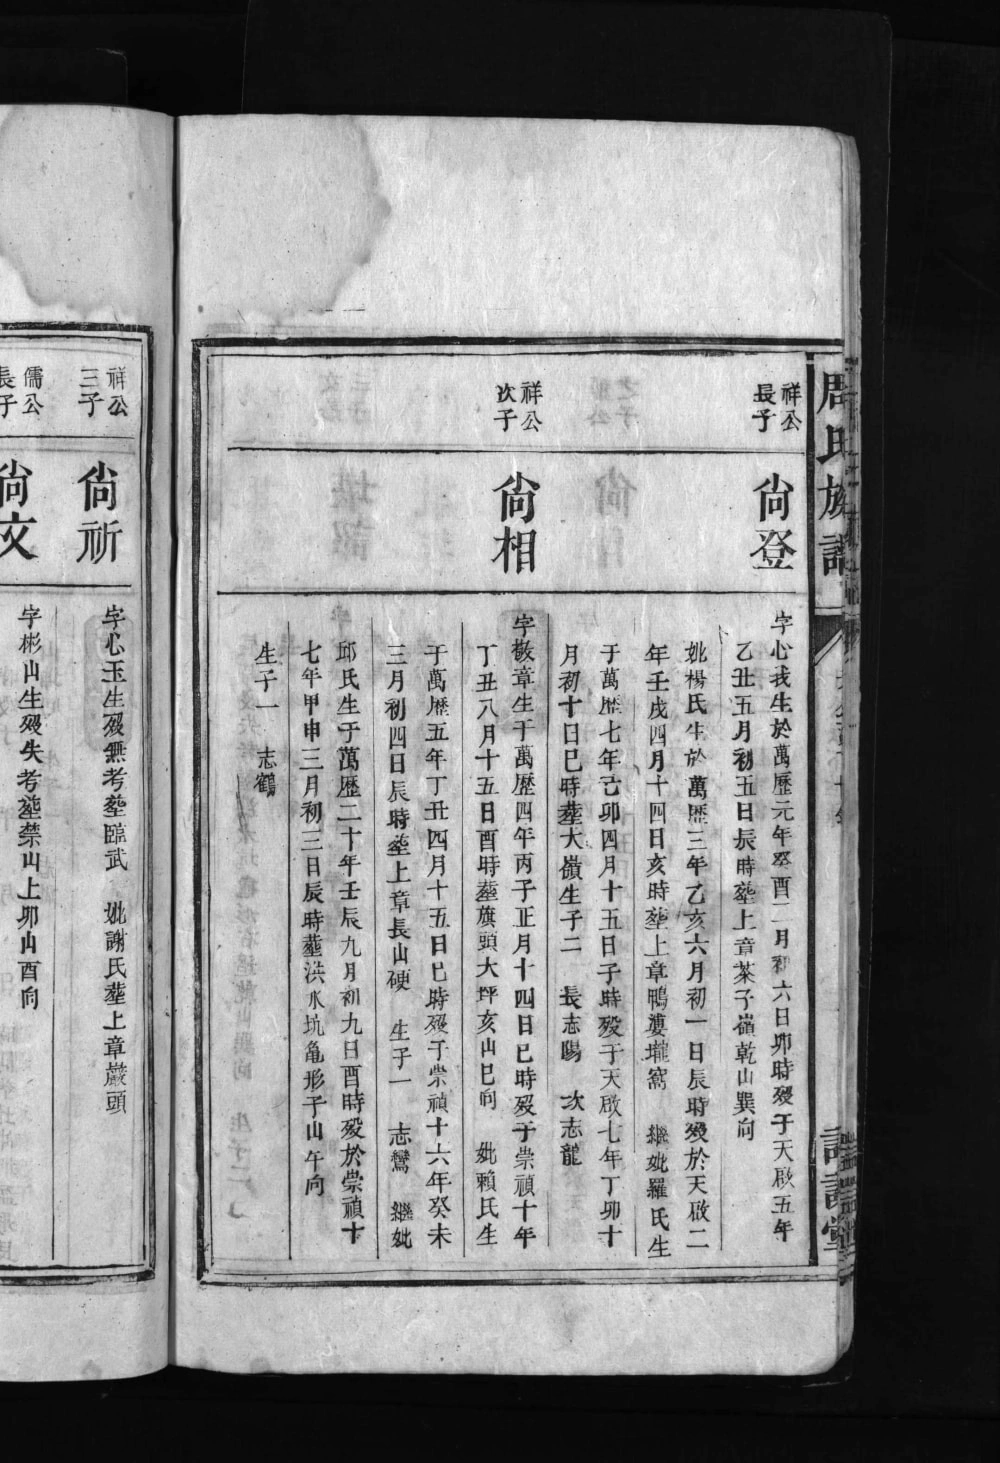 周氏族譜
祥公
長子
尙登
字心我生於萬歷元年癸酉二月初六日卯時殁于天啟五年
乙丑五月初五日辰時塟上章茶子嶺乾山巽向
妣楊氏生於萬歷三年乙亥六月初一日辰時殁於天啟二
年壬戌四月十四日亥時塟上章鴨婆壠窩 繼妣羅氏生
于萬歷七年己卯四月十五日子時殁于天啟七年丁卯十
月初十日巳時塟大嶺生子二 長志陽 次志龍
祥公
次子
尙相
字敬章生于萬歷四年丙子正月十四日巳時殁于崇禎十年
丁丑八月十五日酉時塟旗頭大坪亥山巳向 妣賴氏生
于萬歷五年丁丑四月十五日巳時殁于崇禎十六年癸未
三月初四日辰時塟上章長山硬 生子一 志鸞 繼妣
邱氏生于萬歷二十年壬辰九月初九日酉時殁於崇禎十
七年甲申三月初三日辰時塟洪水坑龜形子山午向
生子一 志鶴
祥公
三子
尙祈
字心玉生殁無考塟臨武 妣謝氏塟上章巖頭
儒公
長子
尙文
字彬山生殁失考塟禁山上卯山酉向